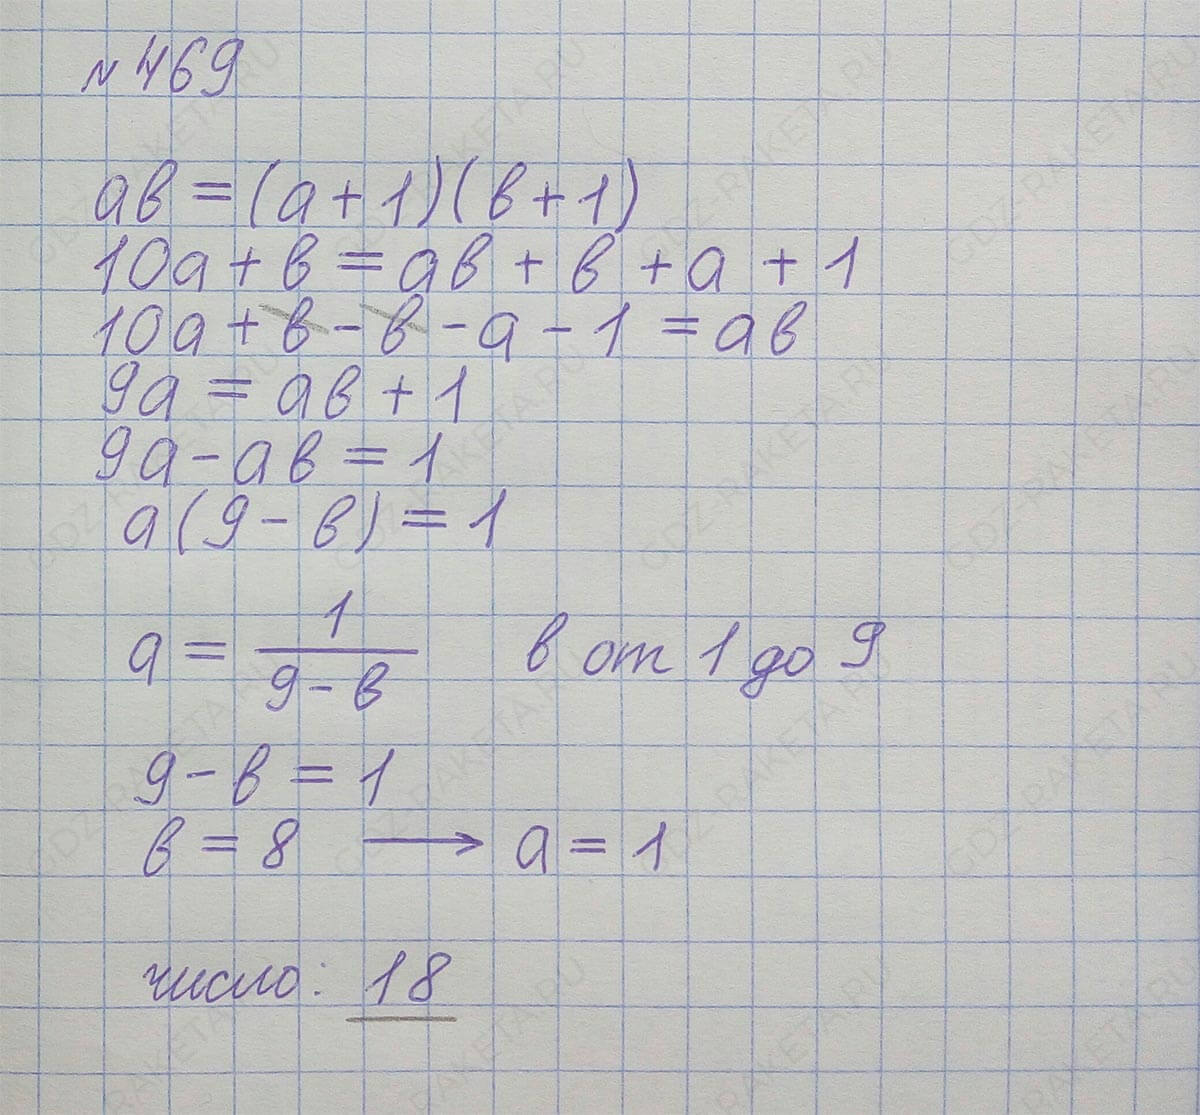 №469
ab = (a + 1)(b + 1)
10a + b = ab + b + a + 1
10a + b - b - a - 1 = ab
9a = ab + 1
9a - ab = 1
a(9 - b) = 1
a = 1/(9 - b)    b от 1 до 9
9 - b = 1
b = 8 ⟶ a = 1
число: 18
GDZ-RAKETA.RU